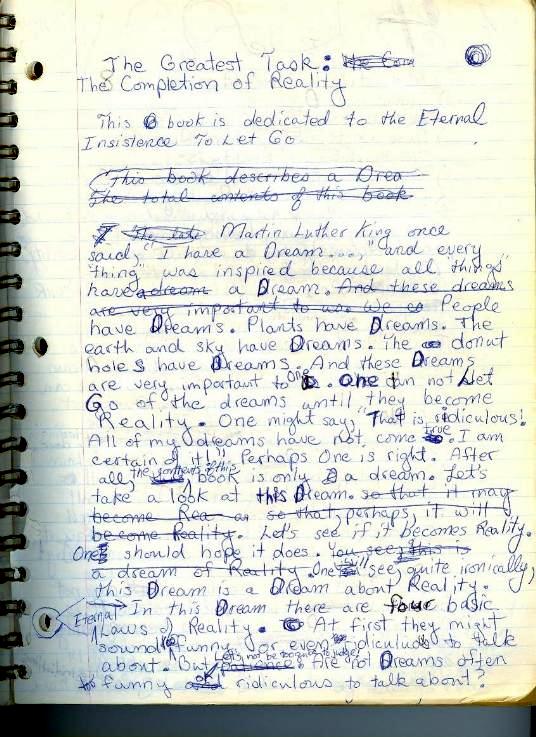 The Greatest Task: the Com
The Completion of Reality
This book is dedicated to the Eternal
Insistence To Let Go
This book describes a Drea
The total contents of this book
The late Martin Luther King once
said, "I have a Dream...," and every
"thing" was inspired because all "things"
have a dream a Dream. And these dreams
are very important to us. We ca People
have Dreams. Plants have Dreams. The
earth and sky have Dreams. The donut
holes have Dreams. And these Dreams
are very important to One. One can not Let
Go of the dreams until they become
Reality. One might say, "That is ridiculous!
All of my dreams have not come true. I am
certain of it!" Perhaps One is right. After
all, the contents of this book is only a dream. Let's
take a look at this Dream. so that it may
become Rea so that, perhaps, it will
become Reality. Let's see if it becomes Reality.
One should hope it does. You see, this is
a dream of Reality. One will see, quite ironically,
this Dream is a Dream about Reality.
In this Dream there are four basic
Eternal Laws of Reality. At first they might
sound funny or even ridiculous to talk
about. But Let's not be too quick to judge. Are not Dreams often
funny and ridiculous to talk about?